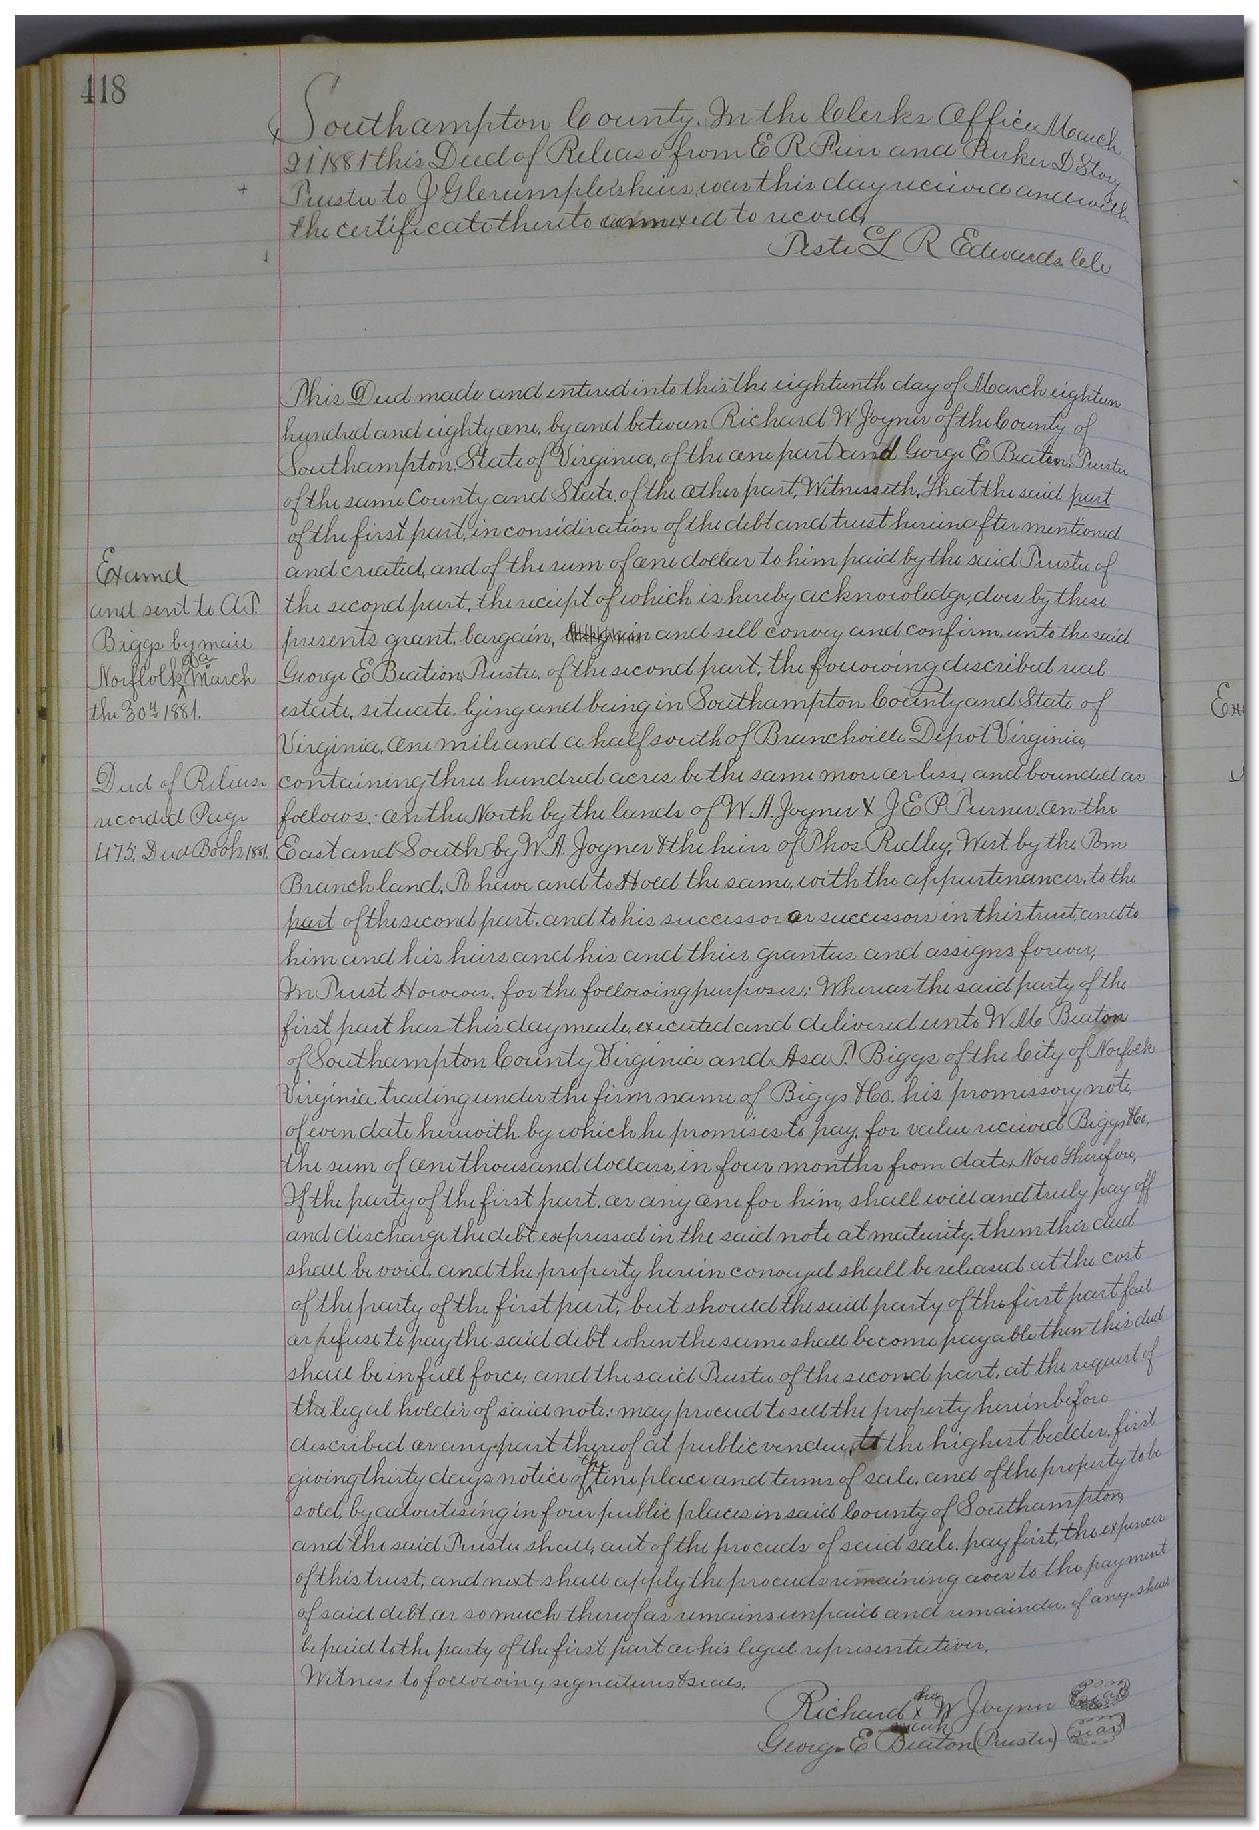 418
Southampton County. In the Clerks Office March
21st 1881 this Deed of Release from E R Purr and Parker D Story
Trustee to J were this day received and with
the certificate thereto annexed to record,
Teste L R Edwards Clk
This Deed made and entered into this the eighteenth day of March eighteen
hundred and eighty one, by and between Richard W Joyner of the County of
Southampton, State of Virginia, of the one part and Gorge E Beaton, Trustee
of the same County and State, of the other part, Witnesseth, That the said part
of the first part, in consideration of the debt and trust hereinafter mentioned
and created, and of the sum of one dollar to him paid by the said Trustee of
the second part, the receipt of which is hereby acknowledge, does by these
presents grant, bargain, and sell convey and confirm unto the said
George E Beation Trustee, of the second part, the following described real
estate, situate lying and being in Southampton County and State of
Virginia, one mile and a half south of Branchville Depot Virginia,
containing three hundred acres be the same more or less, and bounded as
follows: on the North by the lands of W. A. Joyner & J E P. Turner, on the
East and South by W A Joyner & the heirs of Thos. Ridley, West by the Pom
Branch land, To have and to Hold the same, with the appurtenances, to the
part of the second part, and to his successor or successors in this trust, and to
him and his heirs and his and thier grantees and assigns forever,
In Trust However, for the following purposes: Whereas the said party of the
first part has this day made, executed and delivered unto W. M. Beaton
of Southampton County Virginia and Asa T. Biggs of the City of Norfolk
Virginia trading under the firm name of Biggs & Co. his promissory note
of even date herewith by which he promises to pay, for value received Biggs & Co.
the sum of one thousand dollars, in four months from date, Now therefore,
If the party of the first part, or any one for him, shall well and truly pay off
and discharge the debt expressed in the said note at maturity, them this deed
shall be void, and the property herein conveyed shall be released at the cost
of the party of the first part, but should the said party of the first part fail
or refuse to pay the said debt when the same shall become payable then this deed
shall be in full force; and the said Trustee of the second part, at the request of
the legal holder of said note; may proceed to sell the property hereinbefore
described or any part thereof at public vendue, to the highest bidder, first
giving thirty days notice of the time place and terms of sale, and of the property to be
sold, by advertising in four public places in said County of Southampton,
and the said Trustee shall, out of the proceeds of said sale, pay first, the expences
of this trust, and next shall apply the proceeds remaining over to the payment
of said debt or so much thereof as remains unpaid and remainder, if any, shall
be paid to the party of the first part or his legal representatives,
Witness to following signatures & seals,
Richard his x mark W Joyner (Seal)
George E Beaton (Trustee) (Seal)
Examd
and sent to A. T.
Biggs by mail
Norfolk Va March
the 30th 1881.
Deed of Release
recorded Page
475, Deed Book 1881.